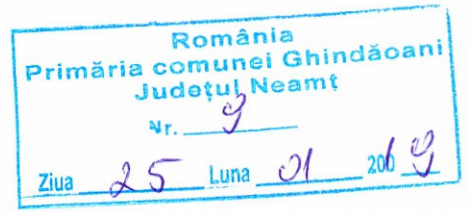 România
Primăria comunei Ghindăoani
Județul Neamț
Nr. 9
Ziua 25 Luna 01 2019